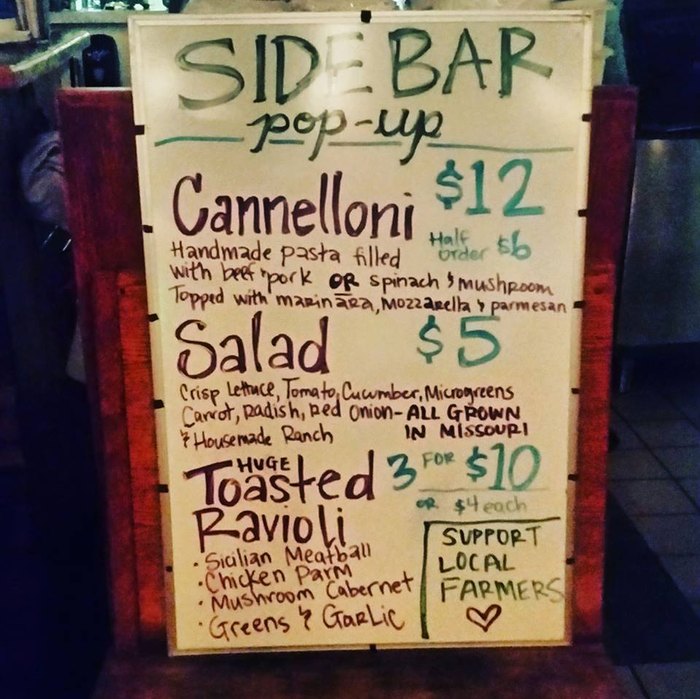 SIDE BAR
pop-up
Cannelloni $12
Half order $6
Handmade pasta filled
with beef & pork OR spinach & mushroom
Topped with marinara, mozzarella & parmesan
Salad $5
Crisp Lettuce, Tomato, Cucumber, Microgreens
Carrot, Radish, Red Onion - ALL GROWN
& Housemade Ranch IN MISSOURI
HUGE
Toasted 3 FOR $10
Ravioli OR $4 each
• Sicilian Meatball
• Chicken Parm
• Mushroom Cabernet
• Greens & Garlic
SUPPORT
LOCAL
FARMERS